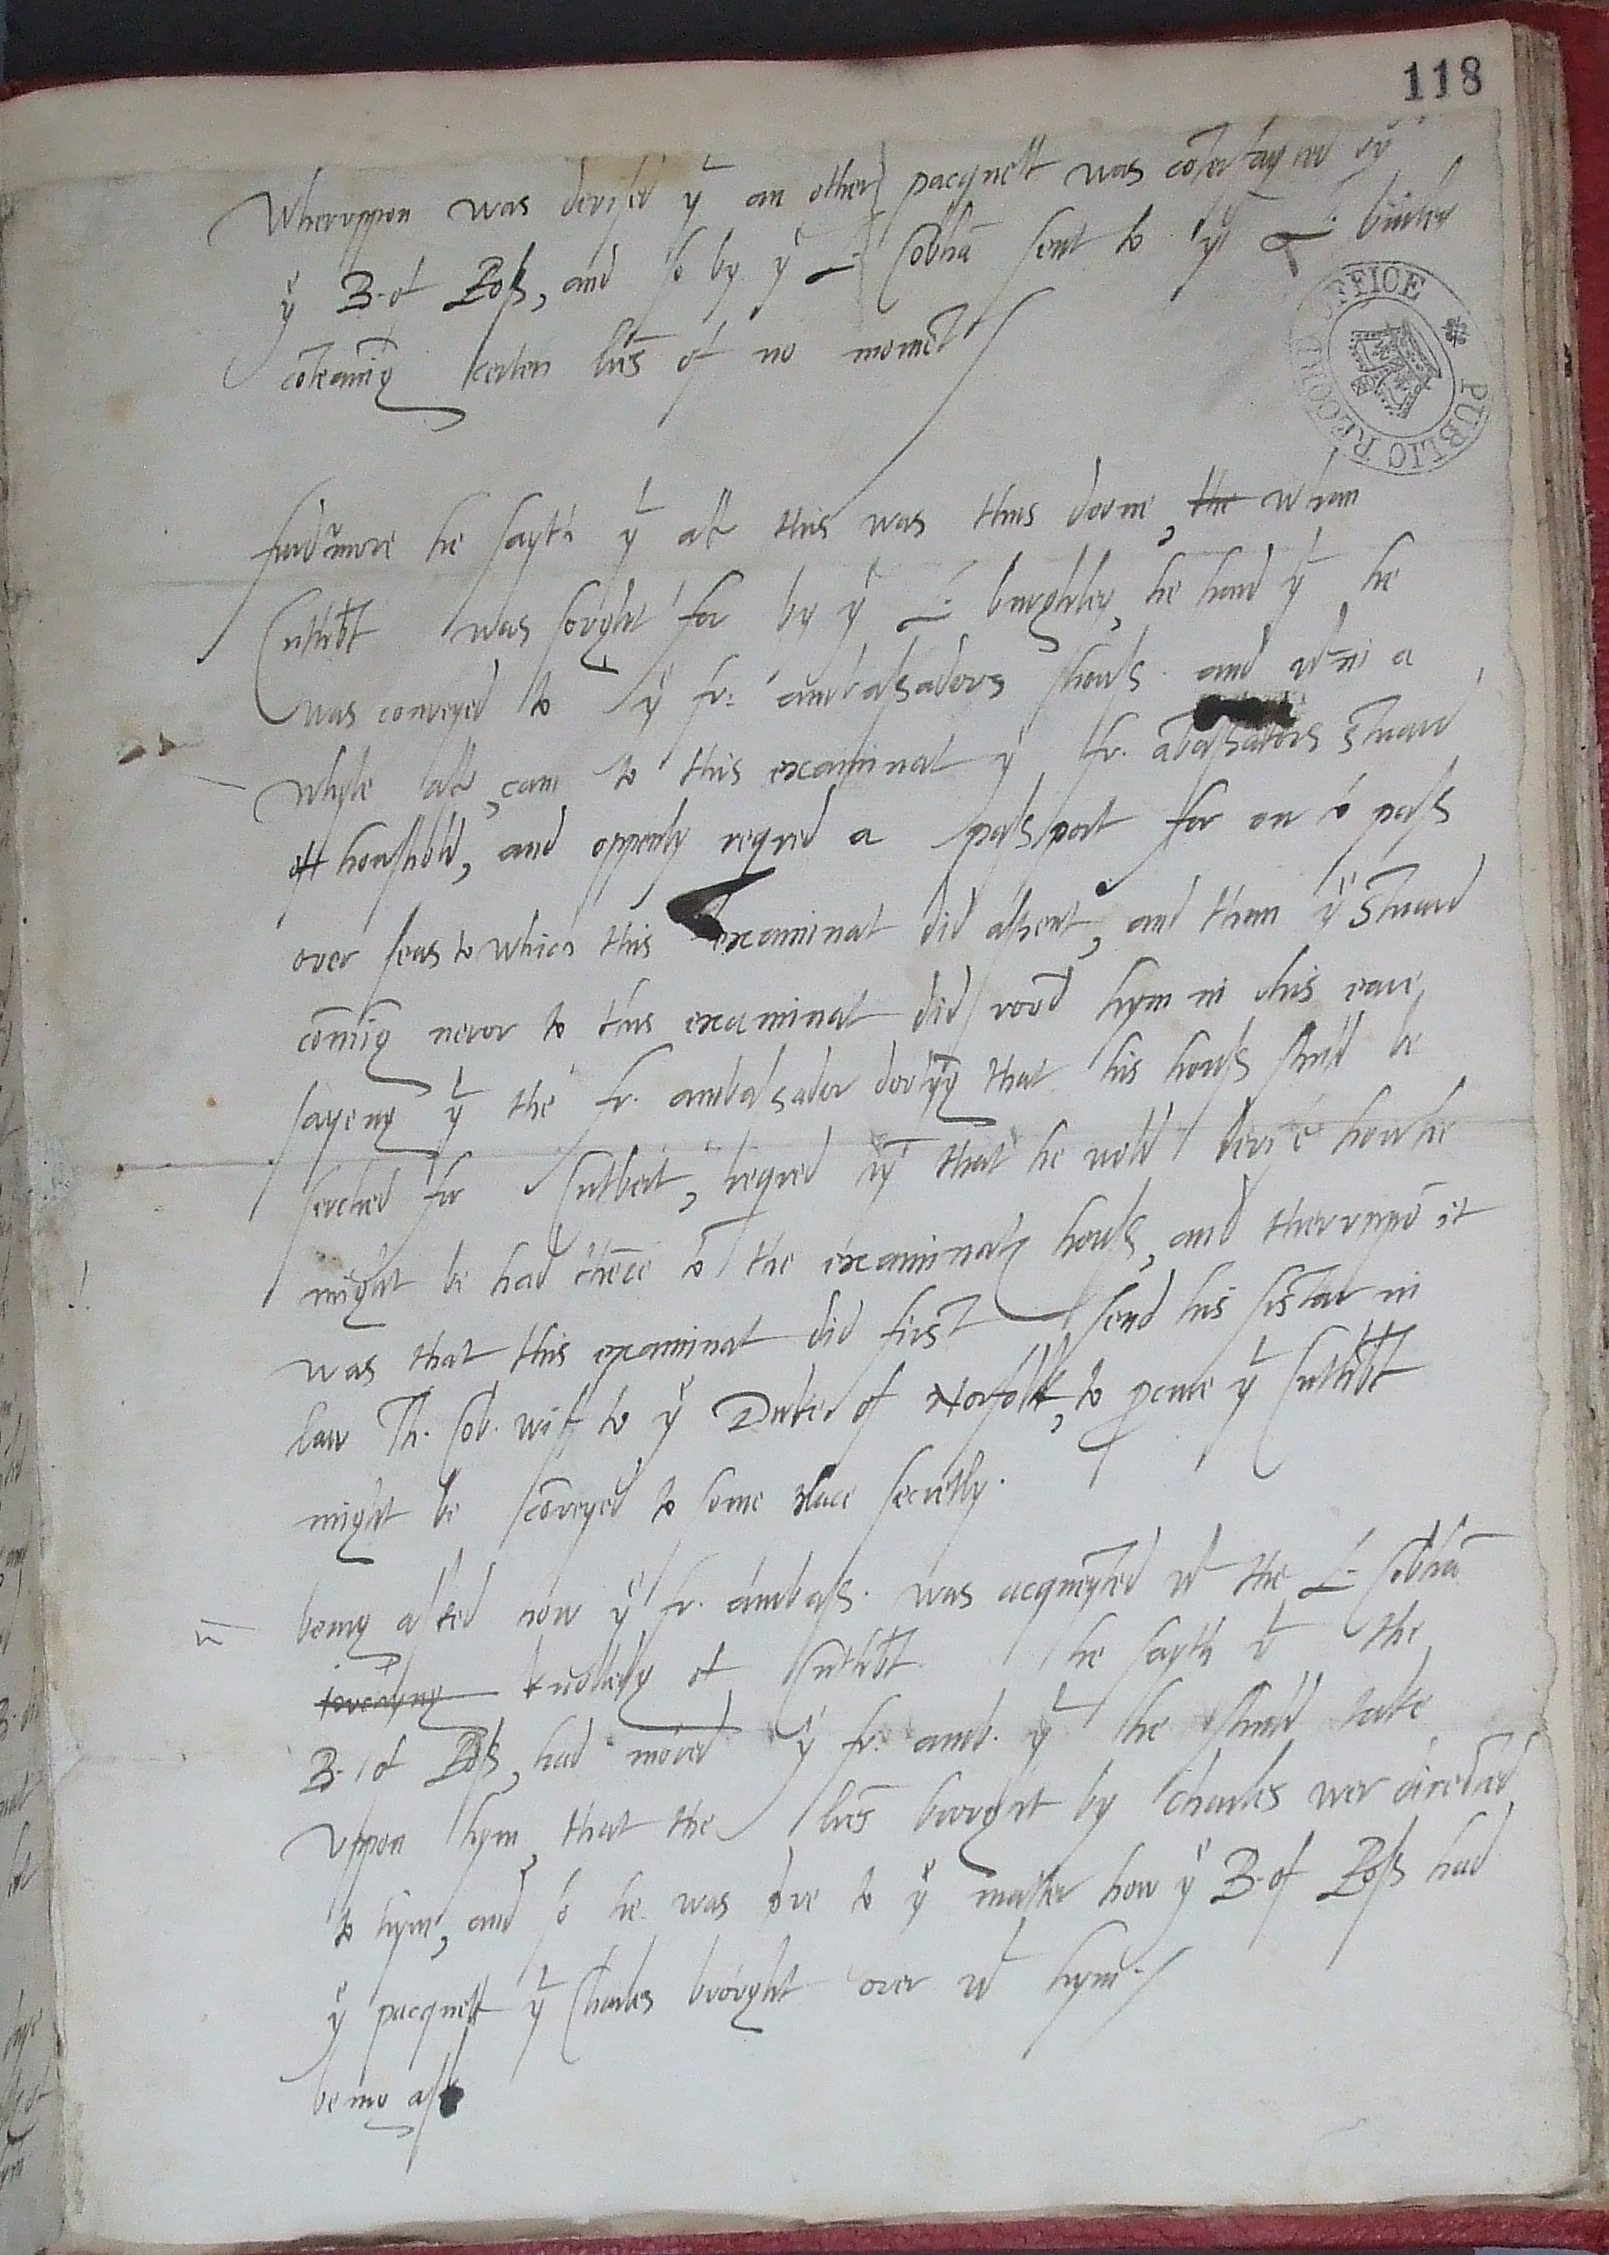 118
Wheruppon was devised yt an other pacquett was coterfayted by
ye B. of Ross, and so by ye L. Cobha sent to ye L. burley
coteaning certen lres of no momet
furdermore he sayth yt aft this was thus donne, the whan
Cuthbt was sought for by ye L. burghley, he hard yt he
was conveyed to ye fr. ambassadors howss. and wtin a
whyle aftr, cam to this examinat ye fr. abassators Stuard
of houshold, and oppenly reqred a passport for on to pass
over seas to which this examinat did assent, and than ye Stuard
coming nerar to this examinat did rood hym in his eare,
sayeng yt the fr. ambassador dovtyg that his howss shuld be
serched for Cutbert, reqred that he wold devise how he
might be had thece to the examinatz howss, and theruppo it
was that this examinat did first send his sistar in
law Th. Cob. wiff to ye Duke of Norfolk, to pcure yt Cuthbt
might be coveyed to some place secretly.
being asked how ye fr. ambass. was acqueyted wt the L. Cobha
knolledg of Cuthbt. he sayth yt the
B. of Ross, had moved ye fr. amb. yt he shuld take
uppon hym, that the lres brought by Charles wer directed
to hym, and so he was pve to ye matter how ye B. of Ross had
ye pacquett yt Charles brought over wt hym.
being ask
PUBLIC RECORD OFFICE